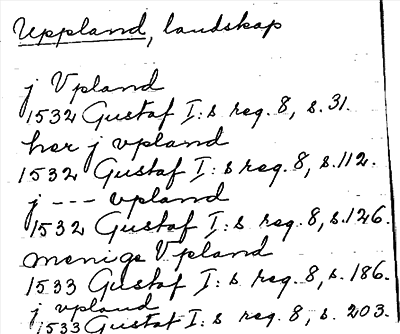 Uppland, landskap
j Vpland
1532 Gustaf I:s reg. 8, s. 31.
her j vpland
1532 Gustaf I:s reg. 8, s. 112.
j --- vpland
1532 Gustaf I:s reg. 8, s. 126.
menige Vpland
1533 Gustaf I:s reg. 8, s. 186.
j vpland
1533 Gustaf I:s reg. 8, s. 203.